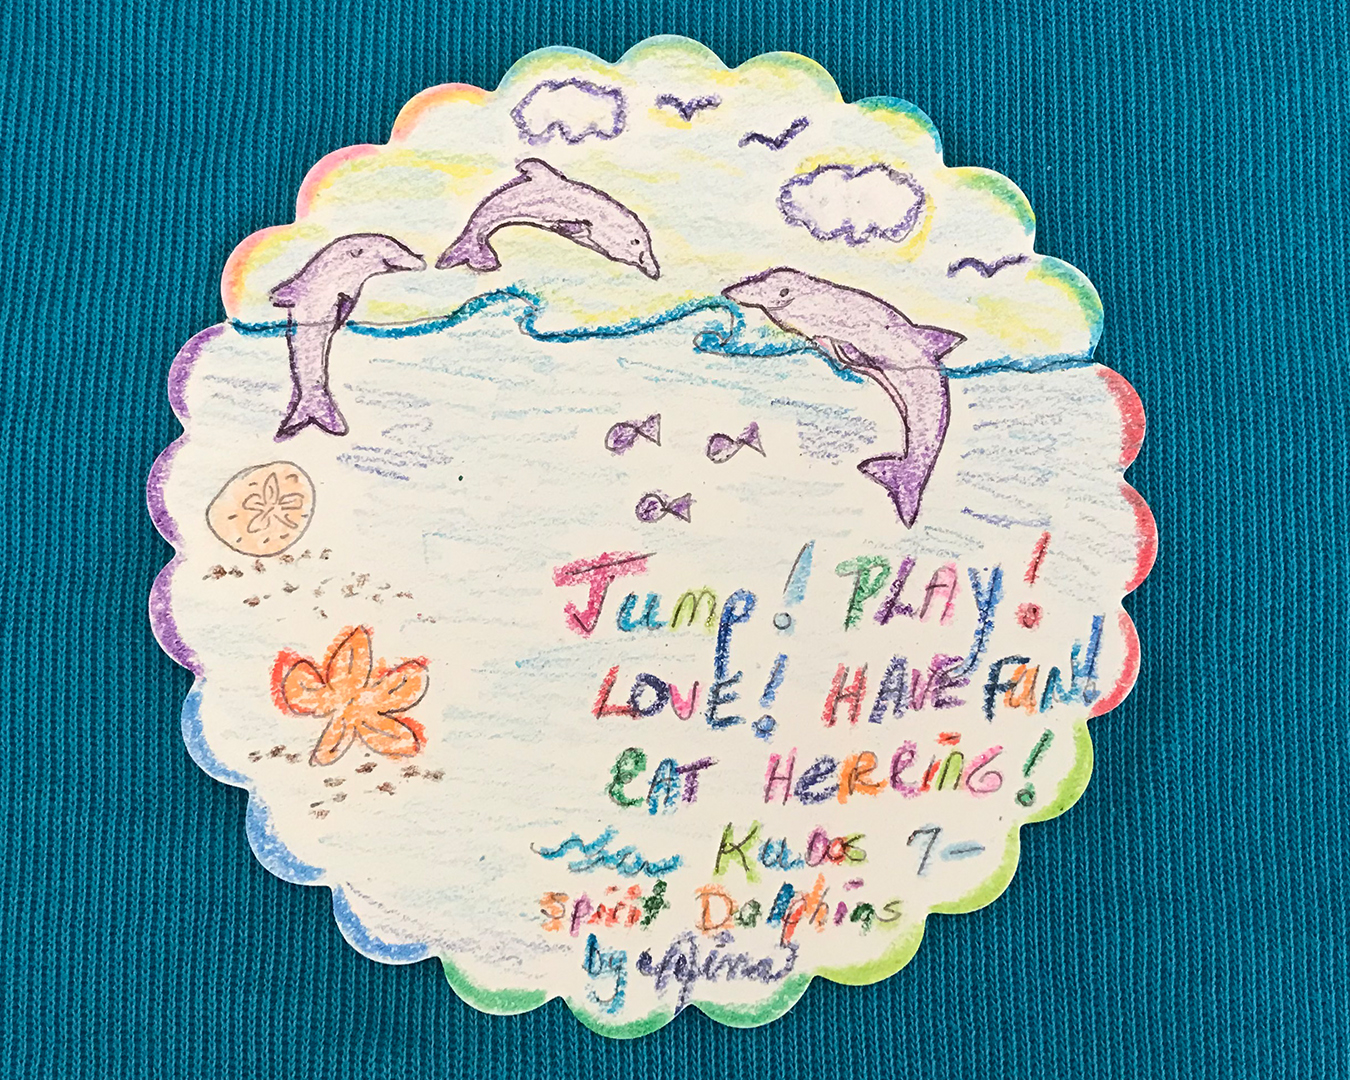 Jump! PLAY!
LOVE! HAVE FUN!
EAT HERRING!
Kudos 7-
Spirit Dolphins
by